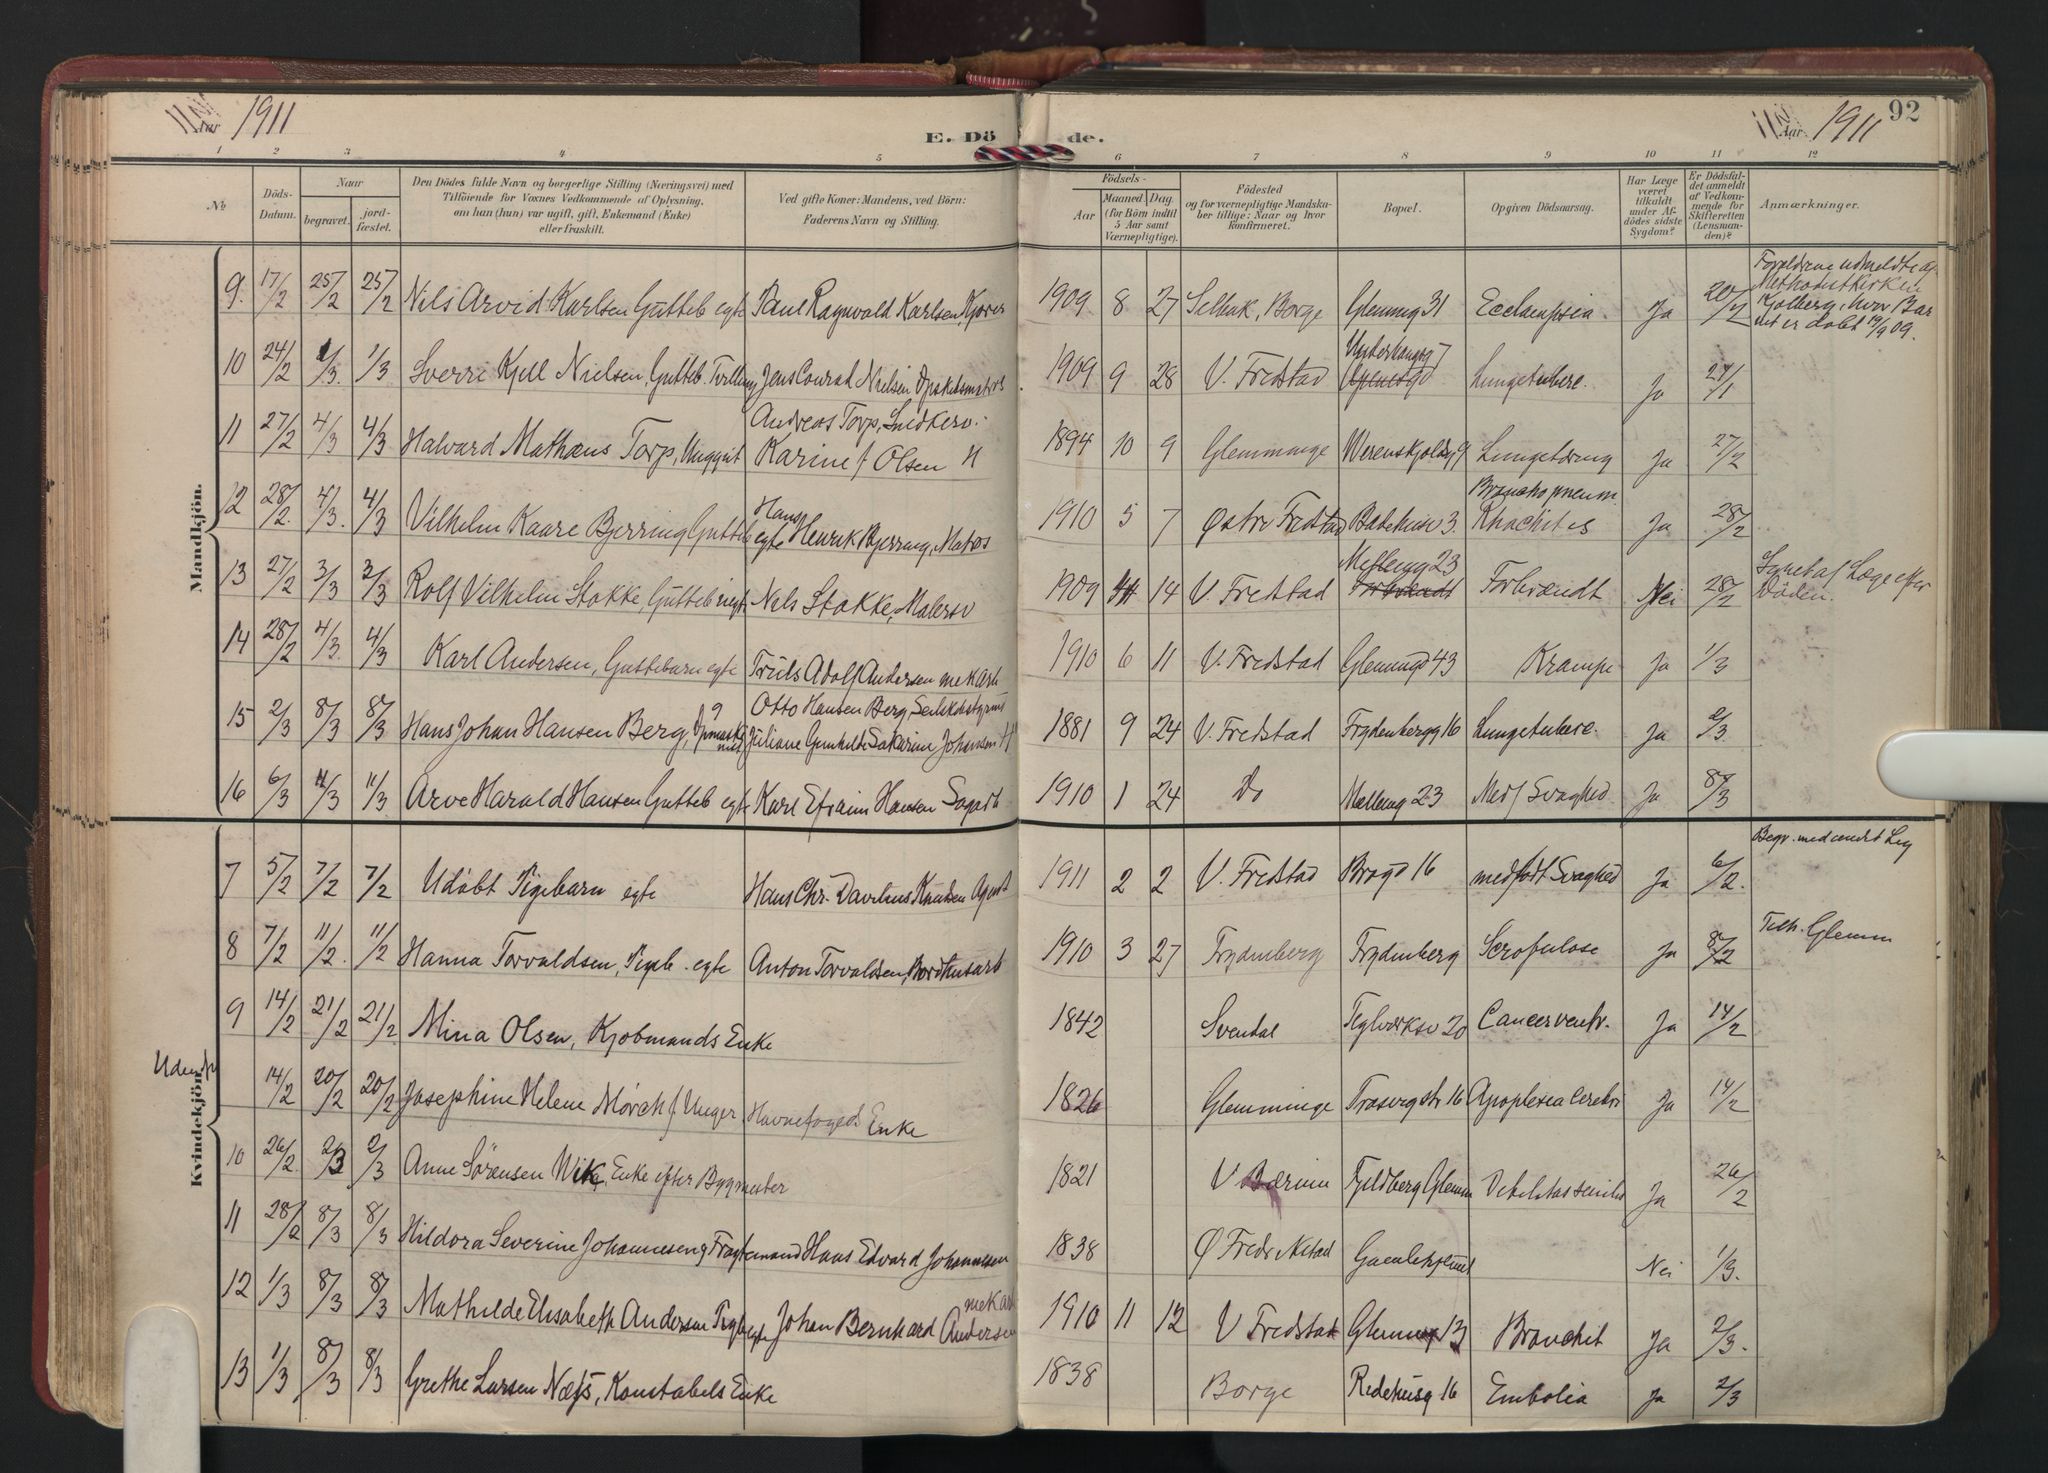 Aar 1911
E. Dö de.
Aar 1911
92
1 2 3 4 5 6 7 8 9 10 11 12
№
Döds-Datum.
Naar
begravet.
jord-fæstet.
Den Dödes fulde Navn og borgerlige Stilling (Næringsvei) med
Tilföiende for Voxnes Vedkommende af Oplysning,
om han (hun) var ugift, gift, Enkemand (Enke)
eller fraskilt.
Ved gifte Koner: Mandens, ved Börn:
Faderens Navn og Stilling.
Födsels-
Aar
Maaned. Dag.
(for Börn indtil
5 Aar samt
Værnepligtige).
Födested
og for værnepligtige Mandska-
ber tillige: Naar og hvor
konfirmeret.
Bopæl.
Opgiven Dödsaarsag.
Har Læge
været
tilkaldt
under Af-
dödes sidste
Sygdom?
Er Dödsfal-
det anmeldt
af Vedkom-
mende for
Skifteretten
(Lensman-
den)?
Anmærkninger.
Mandkjön.
9. 17/2 25/2 25/2 Nils Arvid Karlsen Gutteb egte Paul Ragnvald Karlsen, Kjører 1909 8 27 Selbak, Borge Glemmg 31 Ecclampsia. Ja 20/2 Forældrene udmeldte af Methodistkirken hvor Bar net er døbt 19/9 09.
10 24/2 1/3. 1/3 Sverre Kjell Nielsen, Gutteb. Tvilling Jens Conrad Nielsen 1909 9 28 V. Fredstad Lungetuberc. Ja
11 27/2 4/3 4/3 Halvard Mathæus Torp, Unggut Andreas Torp, Snedkersv. Karine f Olsen H 1894 10 9 Glemminge Werenskjoldg 9 Ja 27/2
12 28/2. 4/3. 4/3 Vilhelm Kaare Bjerring Gutteb egte Hans Henrik Bjerring, Matros 1910 5 7 Østre Fredstad Badehusg 3. Bronchopneum. Rhachites Ja 28/2
13 27/2 3/3 3/3 Rolf Vilhelm Stokke, Gutteb Nils Stokke, Malersv 1909 14 V. Fredstad Mellemg 23 Forbrændt Nei 28/2 Synet af Læge efter Döden.
14 28/2 4/3. 4/3 Karl Andersen, Guttebarn egte Truls Adolf Andersen mek Arb 1910 6 11 V. Fredstad Glemmg 43 Krampe Ja 1/3
15 2/3 8/3 8/3 Hans Johan Hansen Berg, Otto Hansen Berg Juliane Gunhilde Sakarine Johansen H 1881 9 24 V. Fredstad Frydenbergg 16 Lungetuberc. Ja 2/3
16 6/3 11/3 11/3 Arve Harald Hansen Gutteb egte Karl Efraim Hansen Sagarb 1910 1 24 Do Mellemg 23 Medf Svaghed Ja 8/3
Kvindekjön.
7 5/2 7/2 7/2 Udöbt Pigebarn egte Hans Chr. Davilius Knudsen Agent 1911 2 2 V. Fredstad 16 medfödt Svaghed Ja 6/2. Begr. med andet Lig
8 7/2 11/2. 11/2 Hanna Torvaldsen, Pigeb. egte Anton Torvaldsen, 1910 3 27 Frydenberg Frydenberg Scrofulose Ja 8/2 Tilh. Glemm
9 14/2 21/2 21/2. Mina Olsen, Kjøbmands Enke 1842 Svendal Teglverksv 20 Cancer ventr. Ja 14/2
Udenfr 14/2 20/2 20/2 Josephine Helene Mörch f Unger, Havnefogeds Enke 1826 Glemminge 16 Apoplexia Cerebri Ja 14/2
10 26/2. 2/3 2/3 Anne Sörensen Wik, Enke efter Bygmester 1821 V Bærum Glemm Debilitas senilis Ja 26/2
11 28/2 8/3 8/3 Hildora Severine Johannesen g Fragtemand Hans Edvard Johannesen 1838 Ø Fredrikstad Gamlehjemmet Nei 1/3.
12 1/3 8/3 8/3 Mathilde Elisabeth Andersen Pigb egte Johan Bernhard Andersen mek Arb 1910 11 12 V Fredstad Glemmg 13 Bronchit Ja 2/3.
13 1/3 8/3 8/3 Grethe Larsen Næss, Konstabels Enke 1838 Borge Ridehusg 16 Embolia Ja 2/3